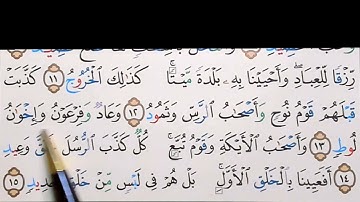 رِزْقًا لِّلْعِبَادِ ۖ وَأَحْيَيْنَا بِهِۦ بَلْدَةً مَّيْتًا ۚ كَذَٰلِكَ الْخُرُوجُ ١١ كَذَّبَتْ
قَبْلَهُمْ قَوْمُ نُوحٍ وَأَصْحَٰبُ الرَّسِّ وَثَمُودُ ١٢ وَعَادٌ وَفِرْعَوْنُ وَإِخْوَٰنُ
لُوطٍ ١٣ وَأَصْحَٰبُ الْأَيْكَةِ وَقَوْمُ تُبَّعٍ ۚ كُلٌّ كَذَّبَ الرُّسُلَ فَحَقَّ وَعِيدِ
١٤ أَفَعَيِينَا بِالْخَلْقِ الْأَوَّلِ ۚ بَلْ هُمْ فِى لَبْسٍ مِّنْ خَلْقٍ جَدِيدٍ ١٥